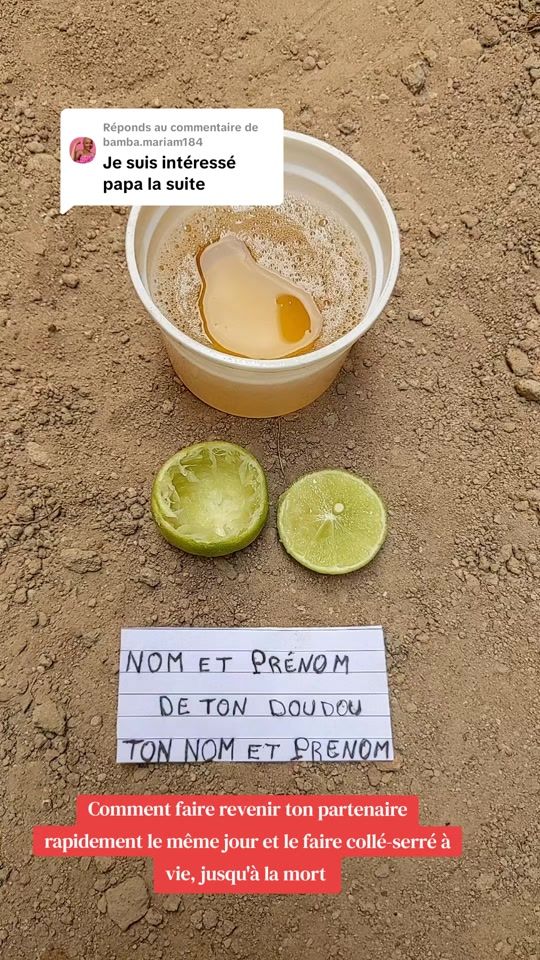 Réponds au commentaire de
bamba.mariam184
Je suis intéressé
papa la suite
NOM ET PRÉNOM
DE TON DOUDOU
TON NOM ET PRENOM
Comment faire revenir ton partenaire
rapidement le même jour et le faire collé-serré à
vie, jusqu'à la mort